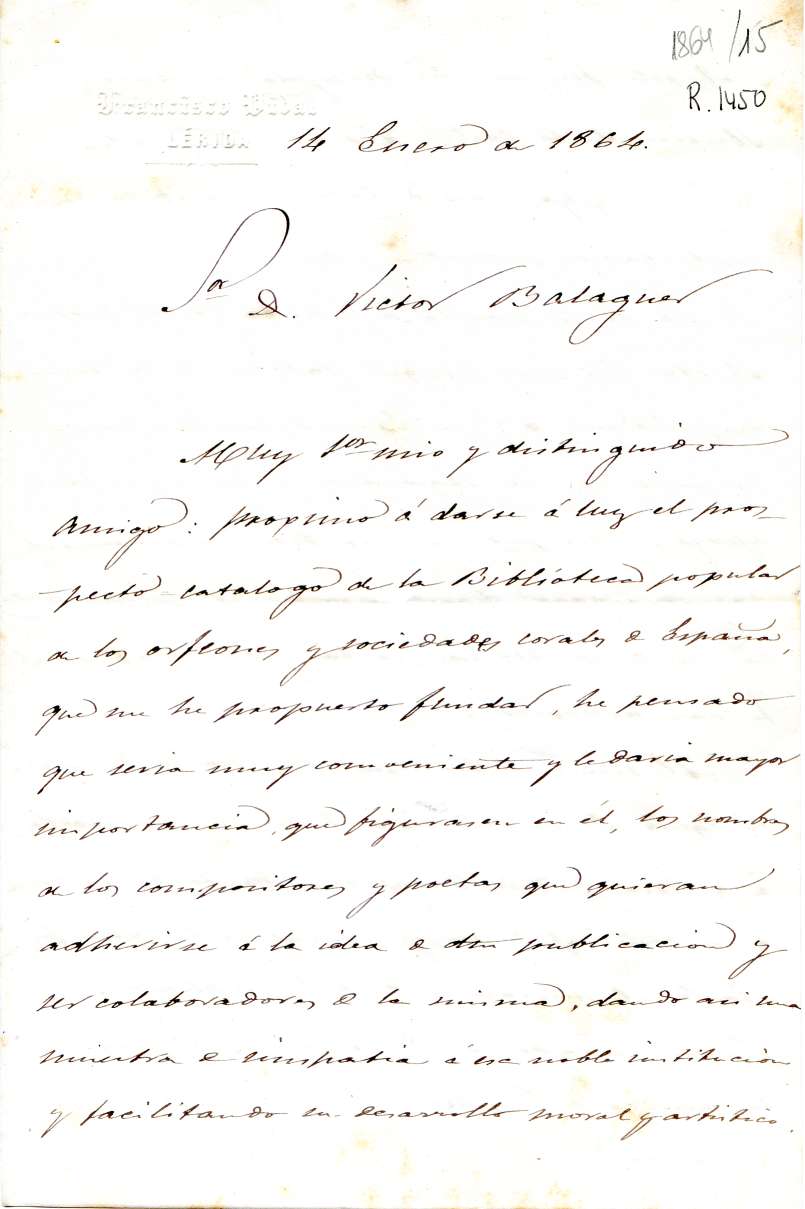 1864/15
R. 1450
Francisco Vidal
LÉRIDA
14 Enero de 1864.
Sor D. Victor Balaguer
Muy Sor mio y distinguido
amigo: proximo á darse á luz el pros-
pecto-catalogo de la Biblioteca popular
de los orfeones y sociedades corales de España,
que me he propuesto fundar, he pensado
que seria muy conveniente y le daria mayor
importancia, que figurasen en él, los nombres
de los compositores y poetas que quieran
adherirse á la idea de publicacion y
ser colaboradores de la misma, dando asi una
muestra de simpatia á esa noble institucion
y facilitando su desarrollo moral y artistico.